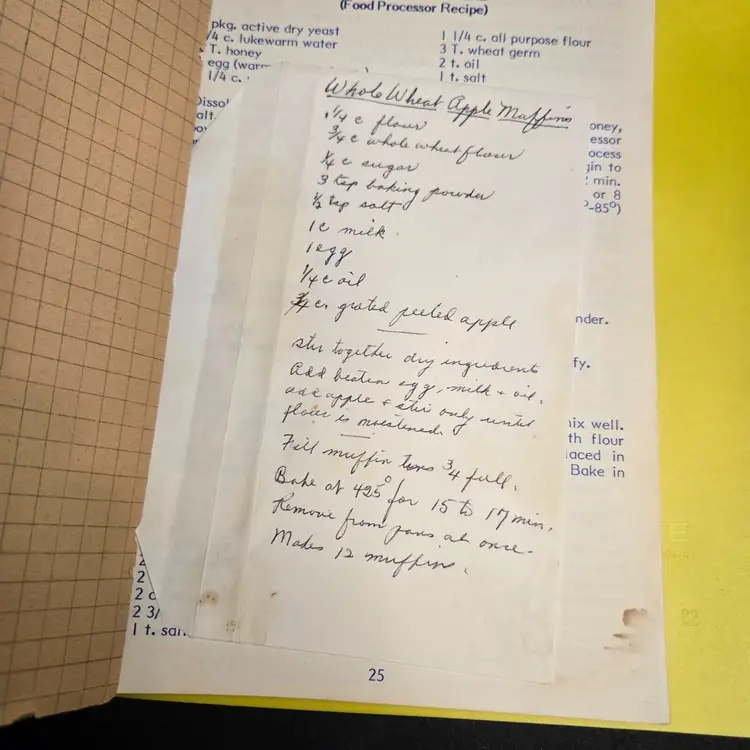 (Food Processor Recipe)
pkg. active dry yeast
/4 c. lukewarm water
T. honey
egg (warm
1/4 c.
1 1/4 c. all purpose flour
3 T. wheat germ
2 t. oil
1 t. salt
Dissol
alt
Whole Wheat Apple Muffins
1 1/4 c flour
3/4 c whole wheat flour
1/4 c sugar
3 tsp baking powder
1/2 tsp salt
1 c milk
1 egg
1/4 c oil
3/4 c. grated peeled apple
stir together dry ingredients
Add beaten egg, milk + oil.
add apple + stir only until
flour is moistened.
Fill muffin tins 3/4 full.
Bake at 425° for 15 to 17 min.
Remove from pans at once.
Makes 12 muffins.
oney,
essor
ocess
gin to
min.
or 8
-85°)
nder.
fy.
ix well.
th flour
laced in
Bake in
2
2
2 c
2 3/
1 t. salt
25